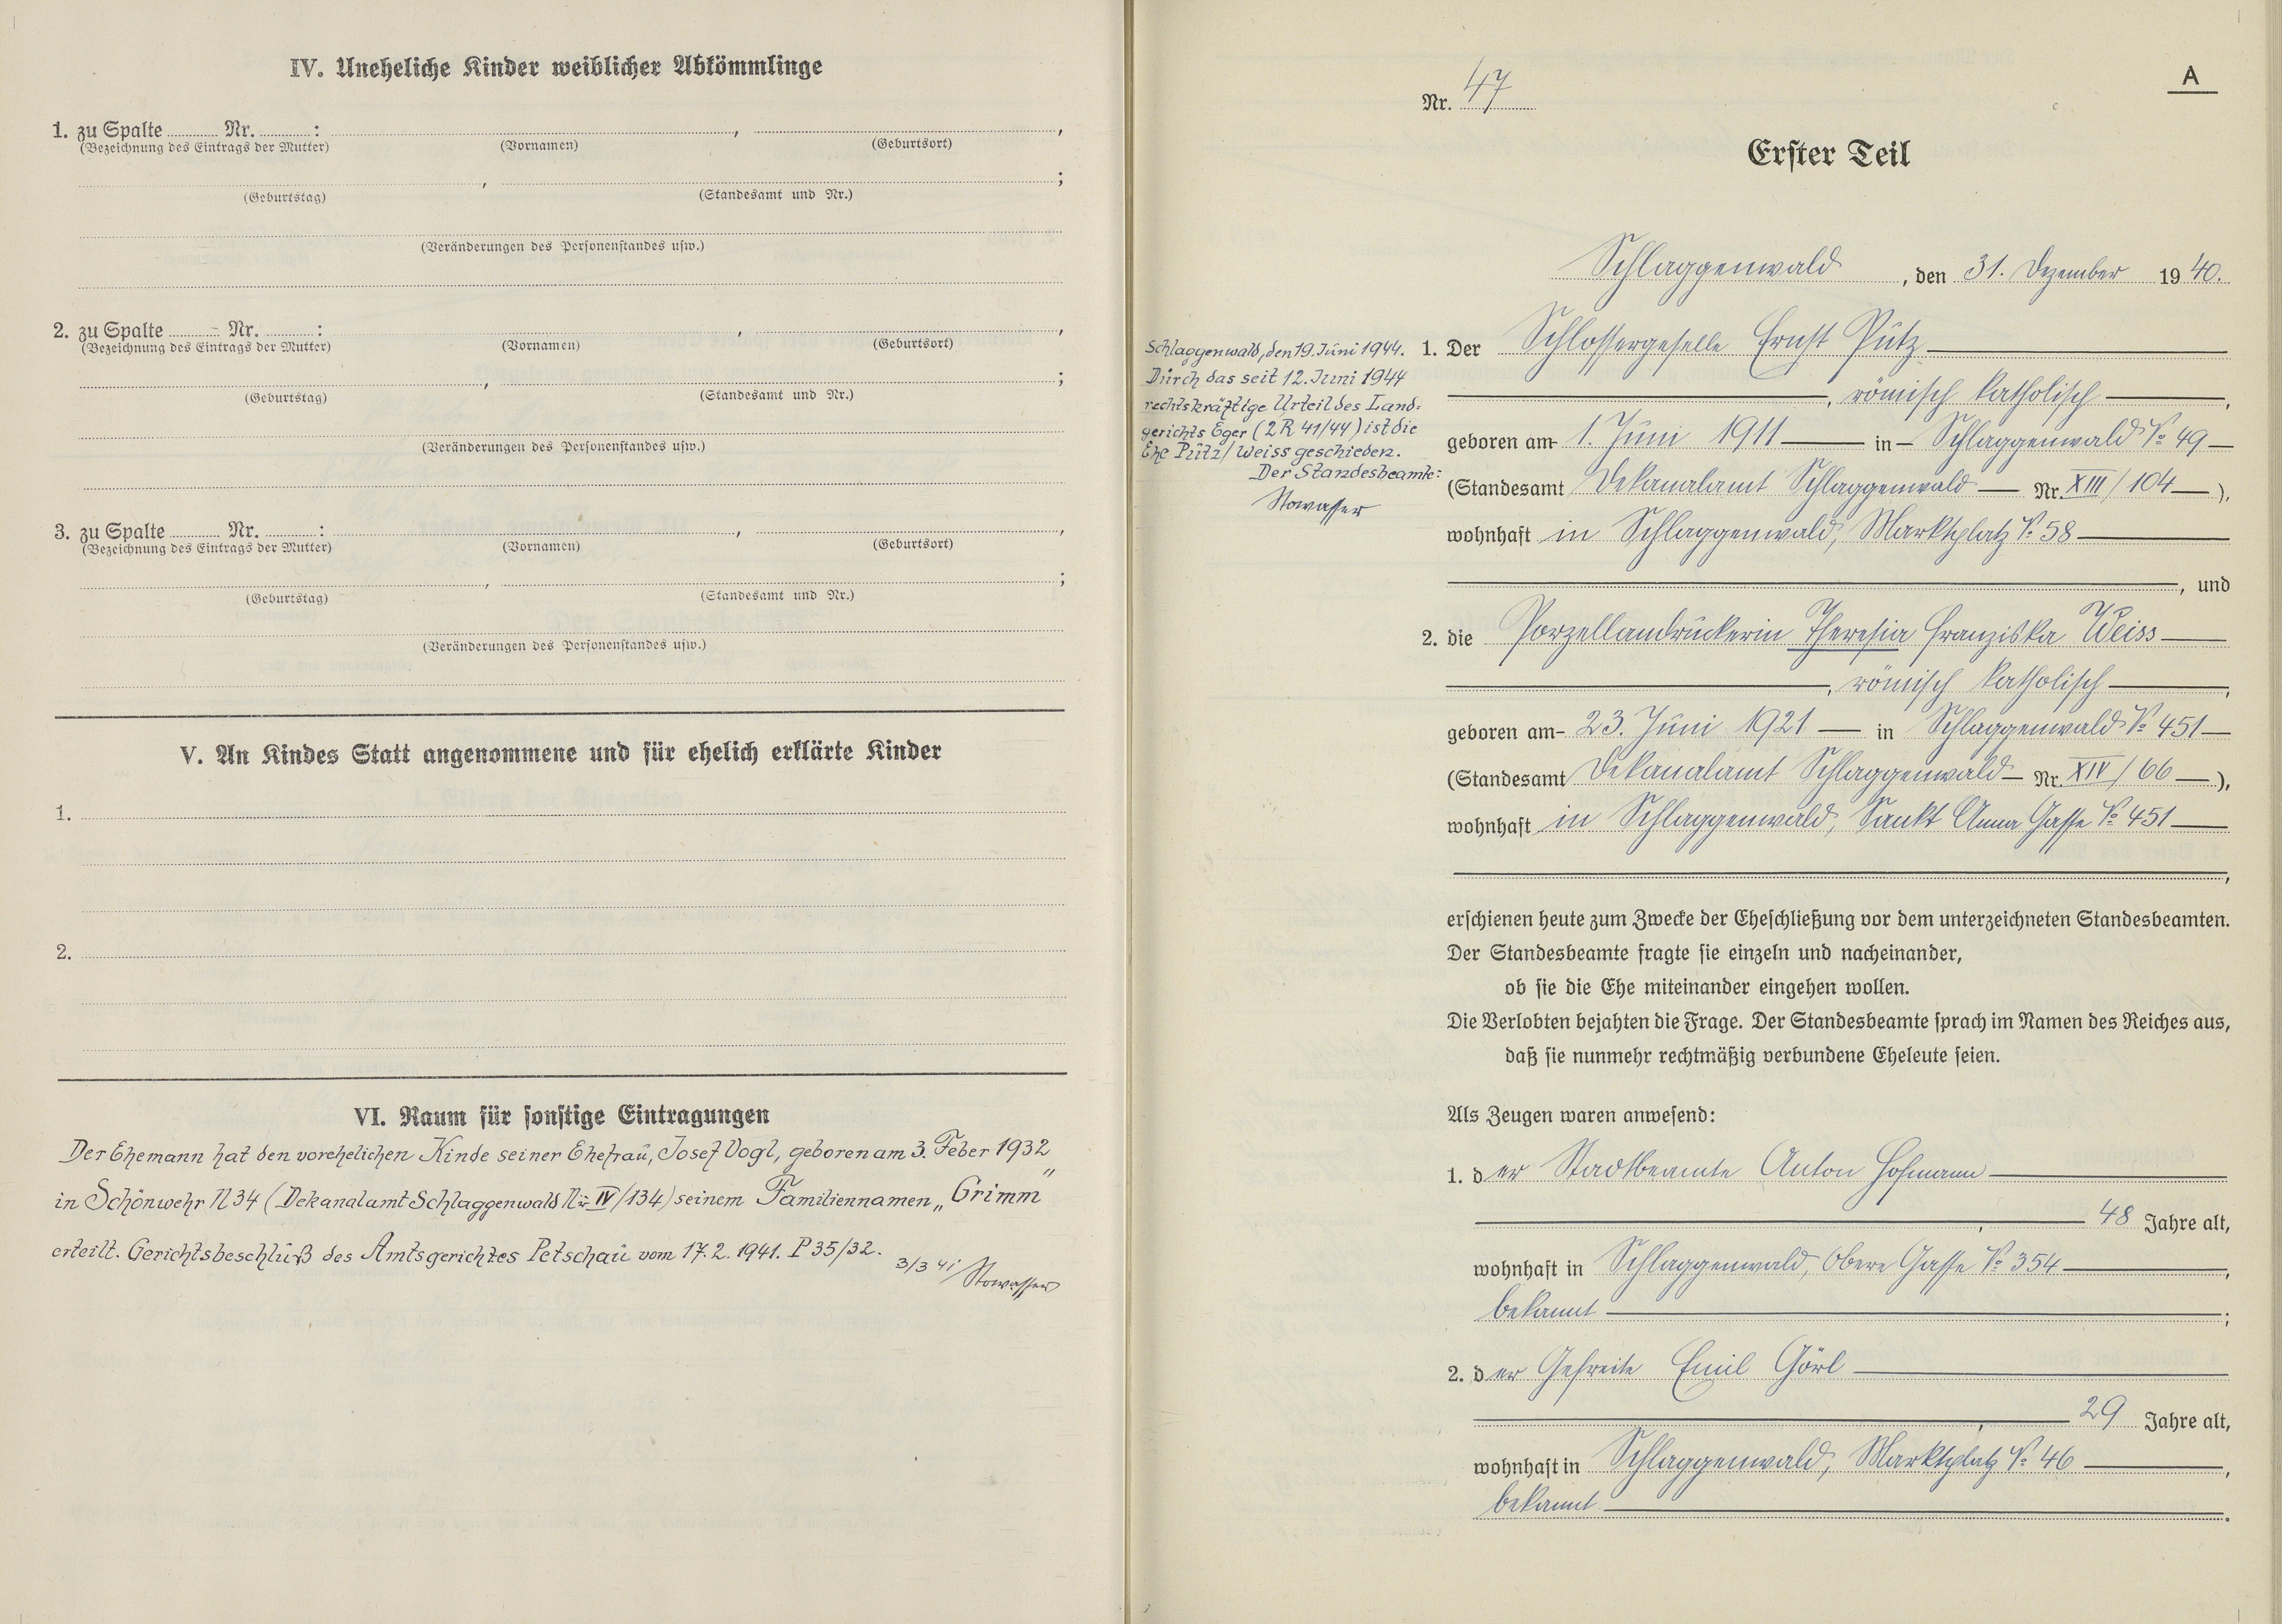 IV. Uneheliche Kinder weiblicher Abkömmlinge
1. zu Spalte Nr. : , ,
(Bezeichnung des Eintrags der Mutter) (Vornamen) (Geburtsort)
, ;
(Geburtstag) (Standesamt und Nr.)
(Veränderungen des Personenstandes usw.)
2. zu Spalte Nr. : , ,
(Bezeichnung des Eintrags der Mutter) (Vornamen) (Geburtsort)
, ;
(Geburtstag) (Standesamt und Nr.)
(Veränderungen des Personenstandes usw.)
3. zu Spalte Nr. : , ,
(Bezeichnung des Eintrags der Mutter) (Vornamen) (Geburtsort)
, ;
(Geburtstag) (Standesamt und Nr.)
(Veränderungen des Personenstandes usw.)
V. An Kindes Statt angenommene und für ehelich erklärte Kinder
1.
2.
VI. Raum für sonstige Eintragungen
Der Ehemann hat den vorehelichen Kinde seiner Ehefrau, Josef Vogl, geboren am 3. Feber 1932
in Schönwehr N 34 (Dekanalamt Schlaggenwald Nr. IV/134) seinem Familiennamen „Grimm"
erteilt. Gerichtsbeschluß des Amtsgerichtes Petschau vom 17. 2. 1941. P 35/32. 3/3 41 Stowasser
A
Nr. 47
Erster Teil
Schlaggenwald, den 31. Dezember 1940.
Schlaggenwald, den 19. Juni 1944.
Durch das seit 12. Juni 1944
rechtskräftige Urteil des Land-
gerichts Eger (2 R 41/44) ist die
Ehe Pütz/Weiss geschieden.
Der Standesbeamte:
Stowasser
1. Der Schlossergeselle Ernst Pütz
, römisch katholisch ,
geboren am 1. Juni 1911 in Schlaggenwald No 49
(Standesamt Dekanalamt Schlaggenwald Nr. XIII/104 ),
wohnhaft in Schlaggenwald, Marktplatz No 58
, und
2. die Porzellandruckerin Theresia Franziska Weiss
, römisch katholisch ,
geboren am 23. Juni 1921 in Schlaggenwald No 451
(Standesamt Dekanalamt Schlaggenwald Nr. XIV/66 ),
wohnhaft in Schlaggenwald, Sankt Anna Gasse No 451
,
erschienen heute zum Zwecke der Eheschließung vor dem unterzeichneten Standesbeamten.
Der Standesbeamte fragte sie einzeln und nacheinander,
ob sie die Ehe miteinander eingehen wollen.
Die Verlobten bejahten die Frage. Der Standesbeamte sprach im Namen des Reiches aus,
daß sie nunmehr rechtmäßig verbundene Eheleute seien.
Als Zeugen waren anwesend:
1. der Stadtbeamte Anton Hofmann
, 48 Jahre alt,
wohnhaft in Schlaggenwald, Obere Gasse No 354 ,
bekannt ;
2. der Gefreite Emil Görl
, 29 Jahre alt,
wohnhaft in Schlaggenwald, Marktplatz No 46 ,
bekannt .